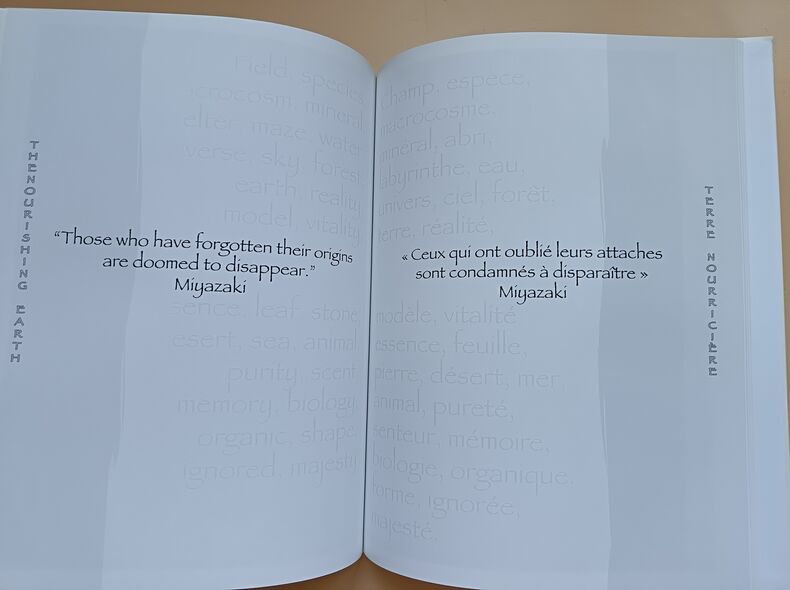 THE NOURISHING EARTH
Field, species,
mineral
maze, water
verse, sky, forest
earth, reality
model, vitality
“Those who have forgotten their origins
are doomed to disappear.”
Miyazaki
sence, leaf, stone,
esert, sea, animal,
purity, scent,
memory, biology,
organic, shape,
ignored, majesty
champ, espèce,
macrocosme,
minéral, abri,
labyrinthe, eau,
univers, ciel, forêt.
terre, réalité,
« Ceux qui ont oublié leurs attaches
sont condamnés à disparaître »
Miyazaki
modèle, vitalité
essence, feuille,
pierre, désert, mer,
animal, pureté,
senteur, mémoire,
biologie, organique.
forme, ignorée,
majesté.
TERRE NOURRICIÈRE